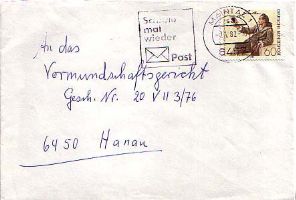 Schreib
mal
wieder
Post
60
An das
Vormundschaftsgericht
Gesch. Nr. 20 VII 3/76
6450 Hanau